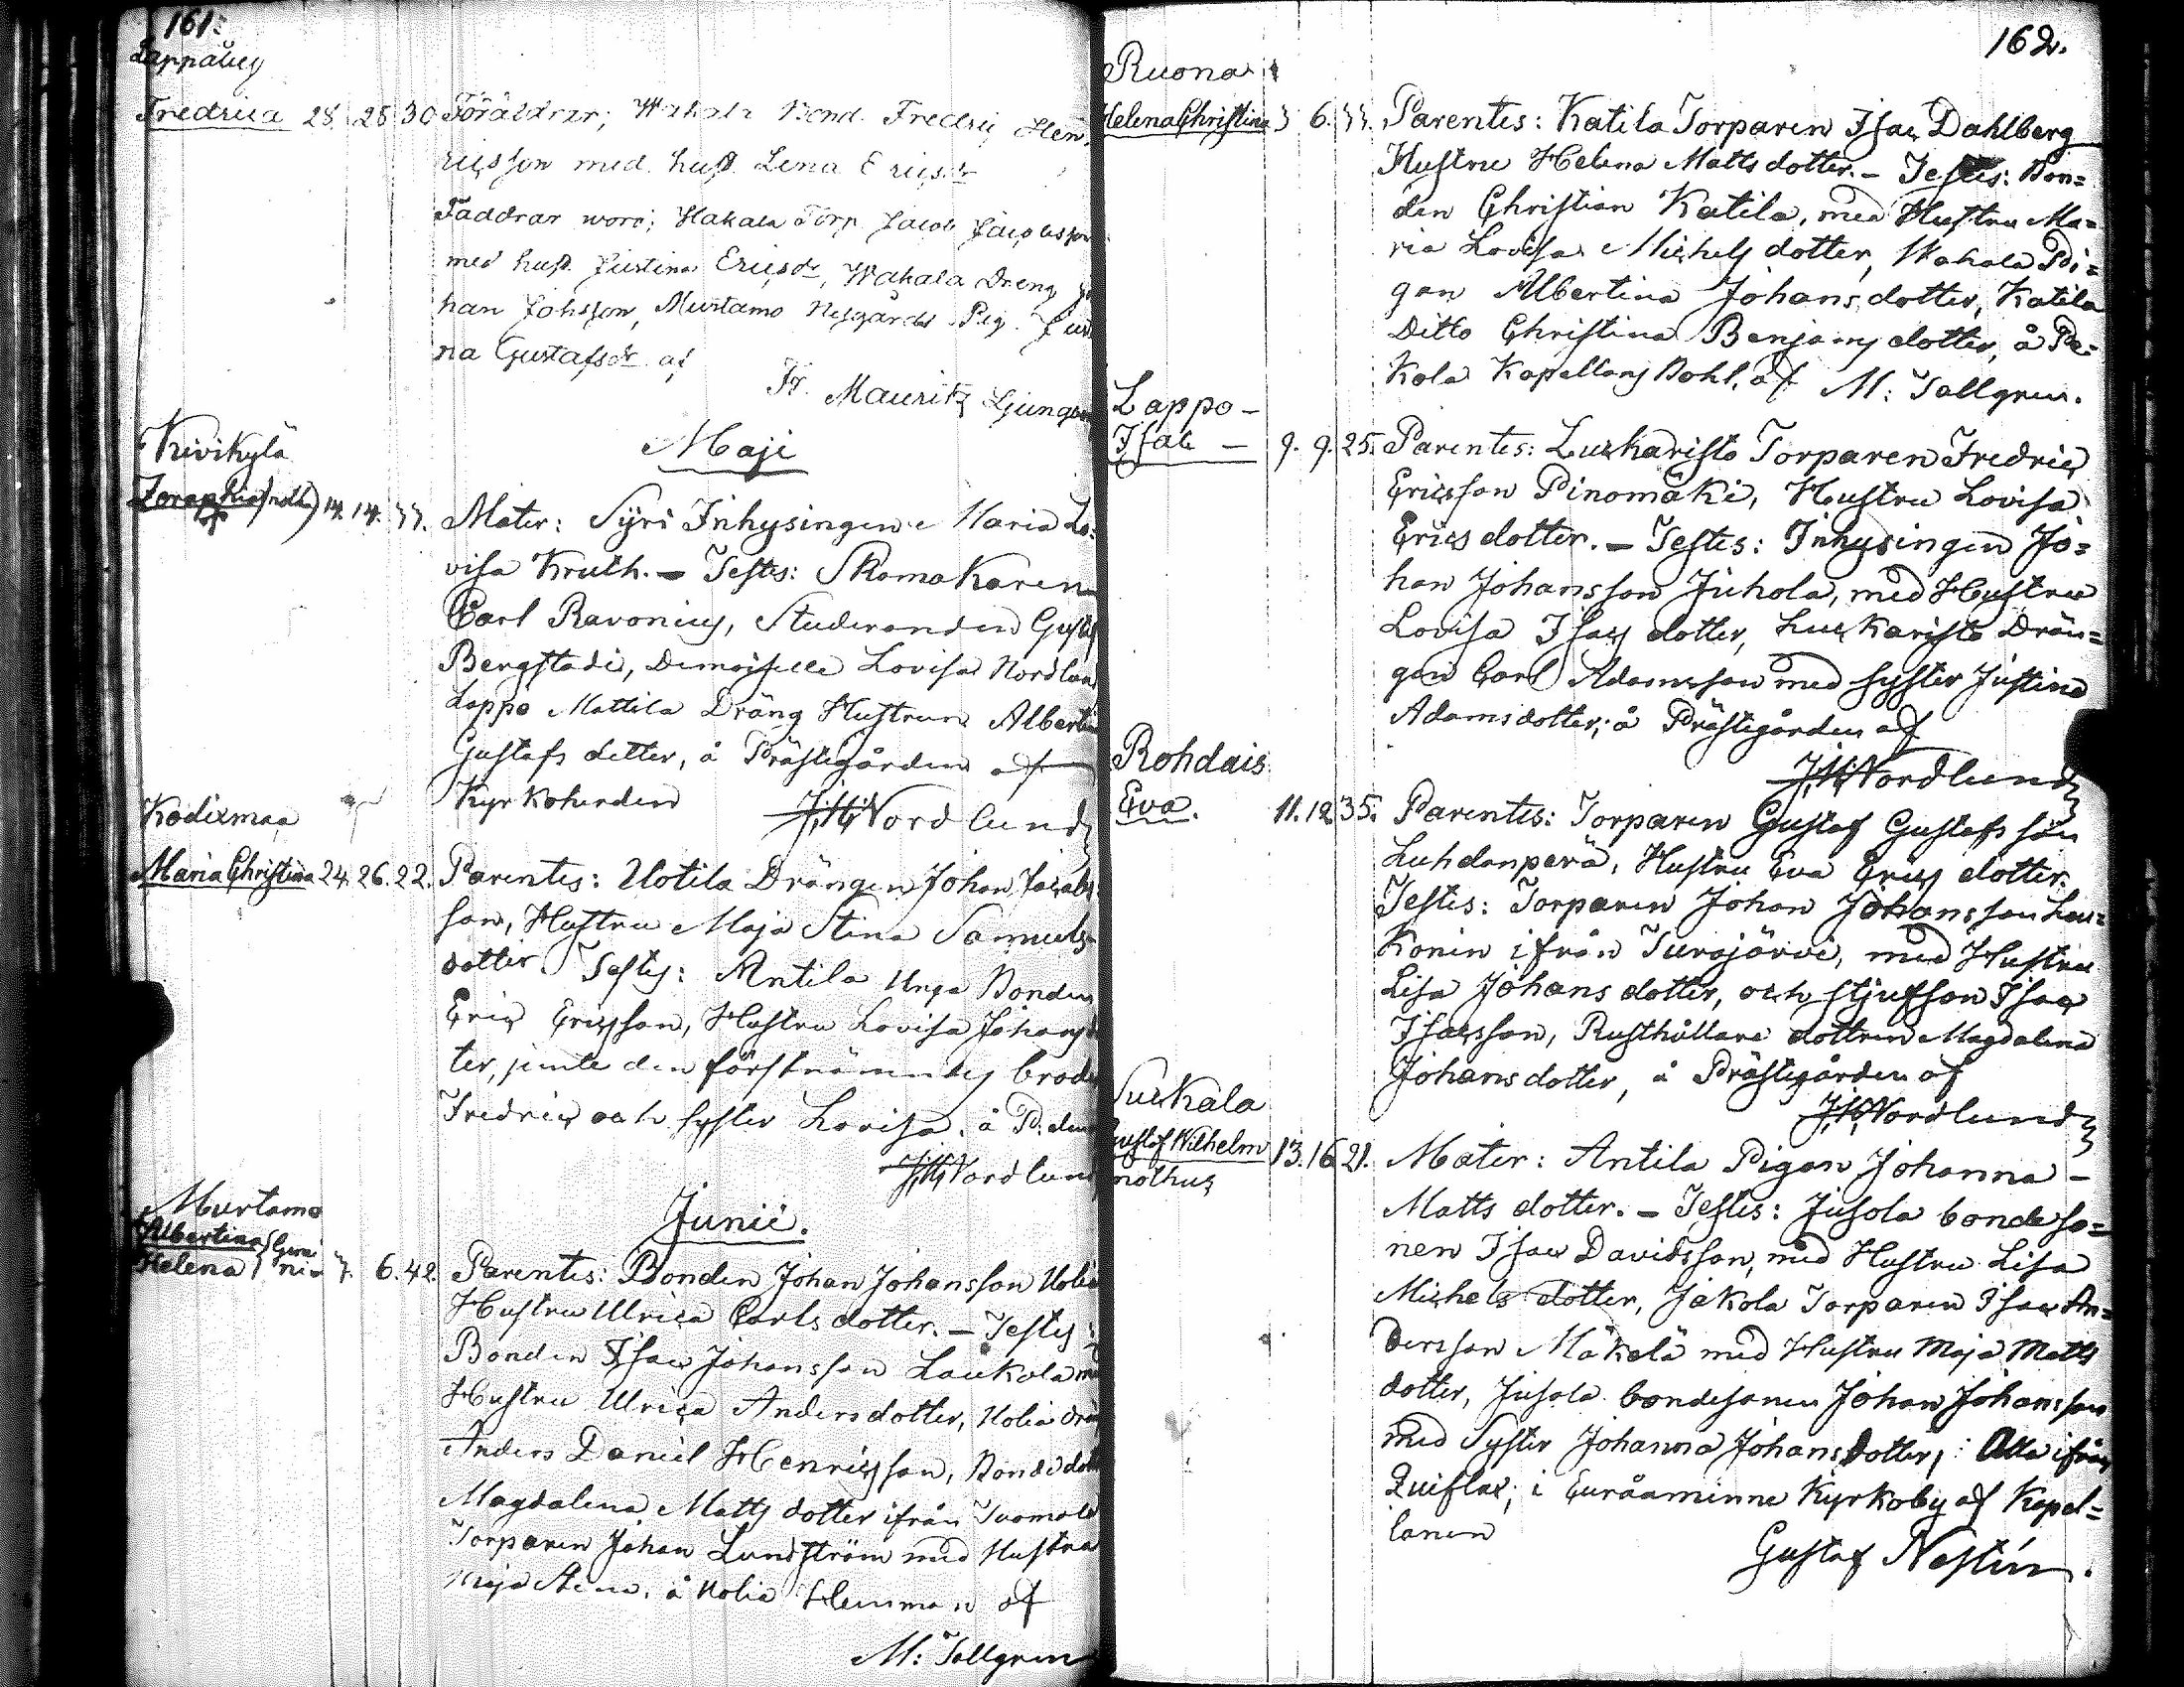 161.
Lappäng
Fredrica 28. 28 30 Föräldrar; Wahala Bond. Fredric Hen-
ricsson med hust. Lena Ericsdr
Faddrar woro; Hakala Torp Jacob Jacobsson
med hust. Justina Ericsdr, Wahala Dreng Jo
han Johsson, Murtamo Nygårds Pig. Justi
na Gustafsdr af
Fr. Mauritz Ljungberg
Maji
Kivikylä
Zoraphia (noth) 14. 14. 33. Mater: Syri Inhysingen Maria Lo-
visa Kruth. - Testes: Skomakaren
Carl Ravonius, Studeranden Gustaf
Bergstadi, Demoiselle Lovisa Nordlund
Lappo Mattila Dräng Hustrun Albertina
Gustafs dotter, å Prästegården af
Kyrkoherden J.H. Nordlund
Kodixmaa
Maria Christina 24. 26. 22. Parentes: Uotila Drängen Johan Jacobs
son, Hustru Maja Stina Samuels
dotter Testes: Antila Unga Bonden
Eric Ericsson, Hustru Lovisa Johansd
ter, jemte den förstnämndes broder
Fredric och syster Lovisa, å P:den
J.H. Nordlund
Junii.
Murtamo
Albertina } Gemi
Helena } ni 3. 6. 42. Parentes: Bonden Johan Johansson Uolia
Hustru Ulrica Carls dotter. - Testes:
Bonden Isac Johansson Laukola med
Hustru Ulrica Anders dotter, Uolia dräng
Anders Daniel Henricsson, Bondedott
Magdalena Matts dotter ifrån Tuomola
Torparen Johan Lundström med Hustru
Maja Stina, å Uolia Hemman af
M: Tallgren
162.
Ruona
Helena Christina 3 6. 33. Parentes: Katila Torparen Isac Dahlberg
Hustru Helena Matts dotter. - Testes: Bon=
den Christian Katila, med Hustru Ma=
ria Lovisa Michels dotter, Wahala Pi=
gan Albertina Johans dotter, Katila
Ditto Christina Benjams dotter, å Pa=
kola Kapellans Bohl, af M: Tallgren.
Lappo -
Isak - 9. 9. 25. Parentes: Luskaristo Torparen Fredric
Ericsson Pinomäki, Hustru Lovisa
Erics dotter. - Testes: Inhysingen Jo=
han Johansson Juhola, med Hustru
Lovisa Isacs dotter, Luskaristo Drän=
gen Carl Adamsson med syster Justina
Adamsdotter; å Prästegården af
J.H. Nordlund
Rohdais
Eva. 11. 12 35. Parentes: Torparen Gustaf Gustafs son
Luhdanperä, Hustru Eva Erics dotter.
Testes: Torparen Johan Johansson Lau=
konin ifrån Turajärvi, med Hustru
Lisa Johans dotter, och stjufson Isac
Isacsson, Rusthållare dottren Magdalena
Johansdotter, å Prästegården af
J.H. Nordlund
Suskala
Gustaf Wilhelm 13. 16 21. Mater: Antila Pigan Johanna -
nothus
Matts dotter. - Testes: Jusola bondeso=
nen Isac Davidsson, med Hustru Lisa
Michels dotter, Jakola Torparen Isac An=
dersson Mäkelä med Hustru Maja Matts
dotter, Jusola bondesonen Johan Johansson
med Syster Johanna Johansdotter; Alla ifrån
Quiflax; i Euraåminne Kyrkoby af Kapel=
lanen
Gustaf Nestin.